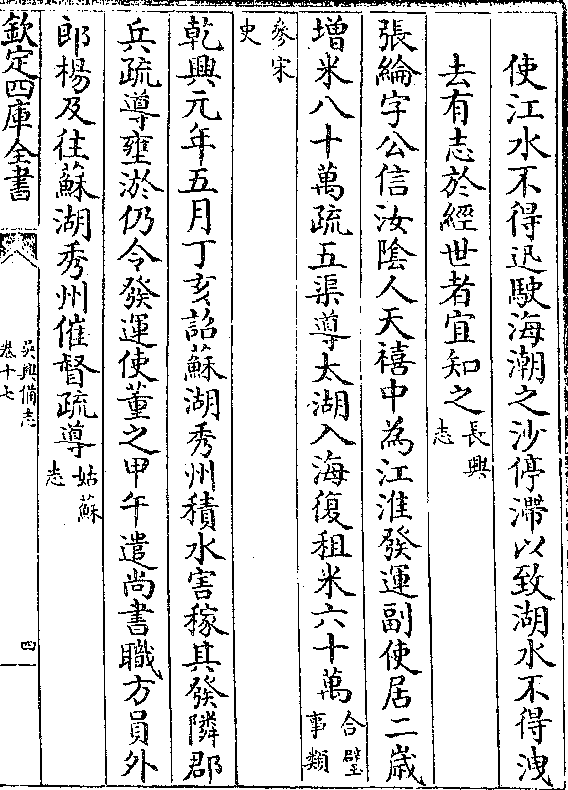 使江水不得迅駛海潮之沙停滯以致湖水不得洩
去有志於經世者宜知之長興
志
張綸字公信汝陰人天禧中為江淮發運副使居二歲
增米八十萬疏五渠導太湖入海復租米六十萬合璧
事類
參宋
史
乾興元年五月丁亥詔蘇湖秀州積水害稼其發隣郡
兵疏導壅淤仍令發運使董之甲午遣尚書職方員外
郎楊及往蘇湖秀州催督疏導姑蘇
志
欽定四庫全書
吳興備志
卷十七
四